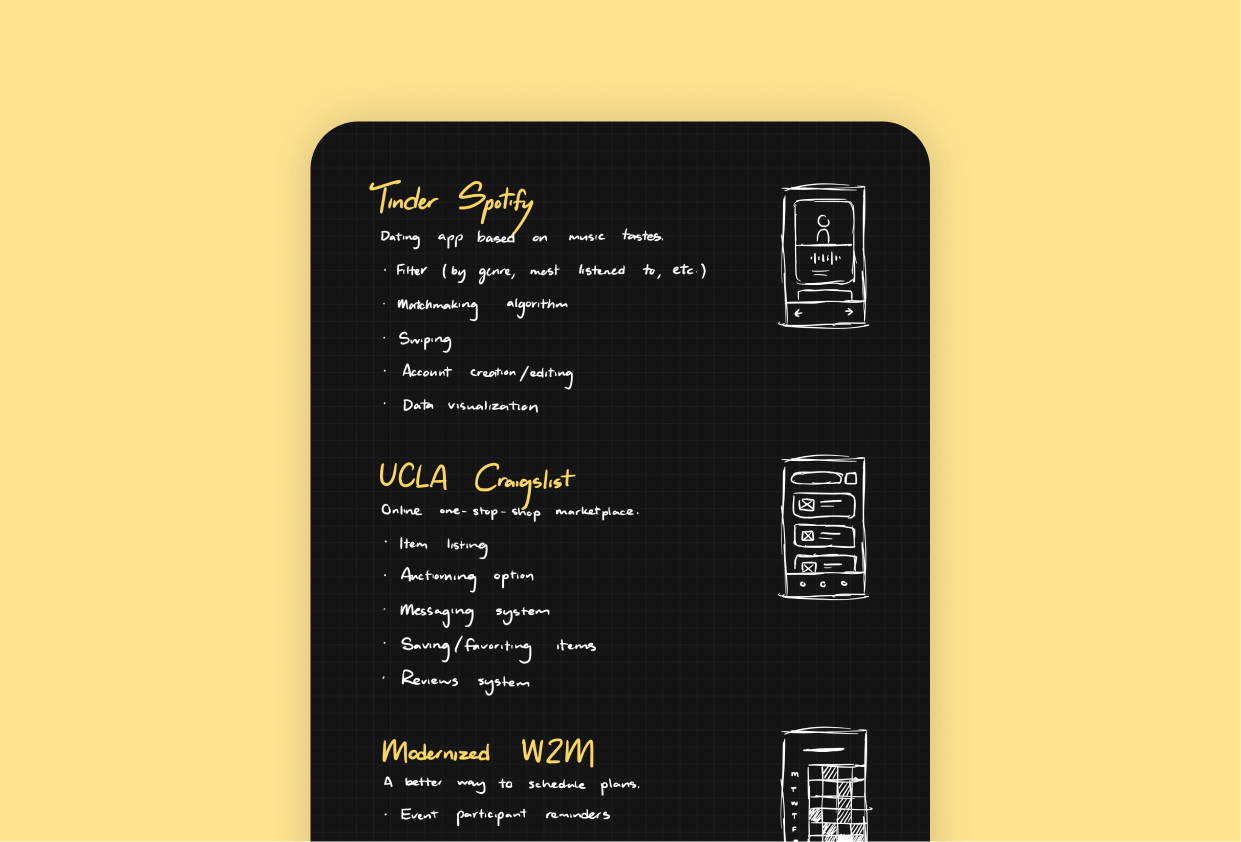 Tinder Spotify
Dating app based on music tastes.
· Filter (by genre, most listened to, etc.)
· Matchmaking algorithm
· Swiping
· Account creation/editing
· Data visualization
UCLA Craigslist
Online one-stop-shop marketplace.
· Item listing
· Auctioning option
· Messaging system
· Saving/favoriting items
· Reviews system
Modernized W2M
A better way to schedule plans.
· Event participant reminders
M
T
W
T
F